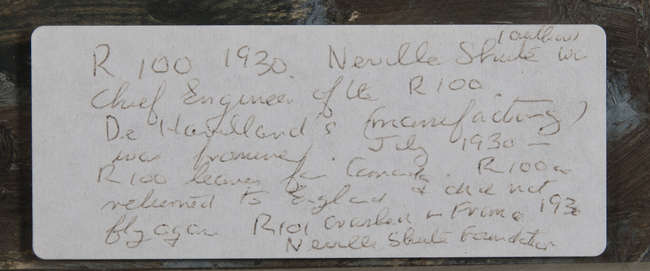 (author)
R 100 1930. Neville Shute
Chief Engineer of the R100.
De Havilland's (manufacturing)
was July 1930 –
R100 leaves for Canada. R100
returned to England & did not
fly again R101 crashed in France 1930
Neville Shute Foundation